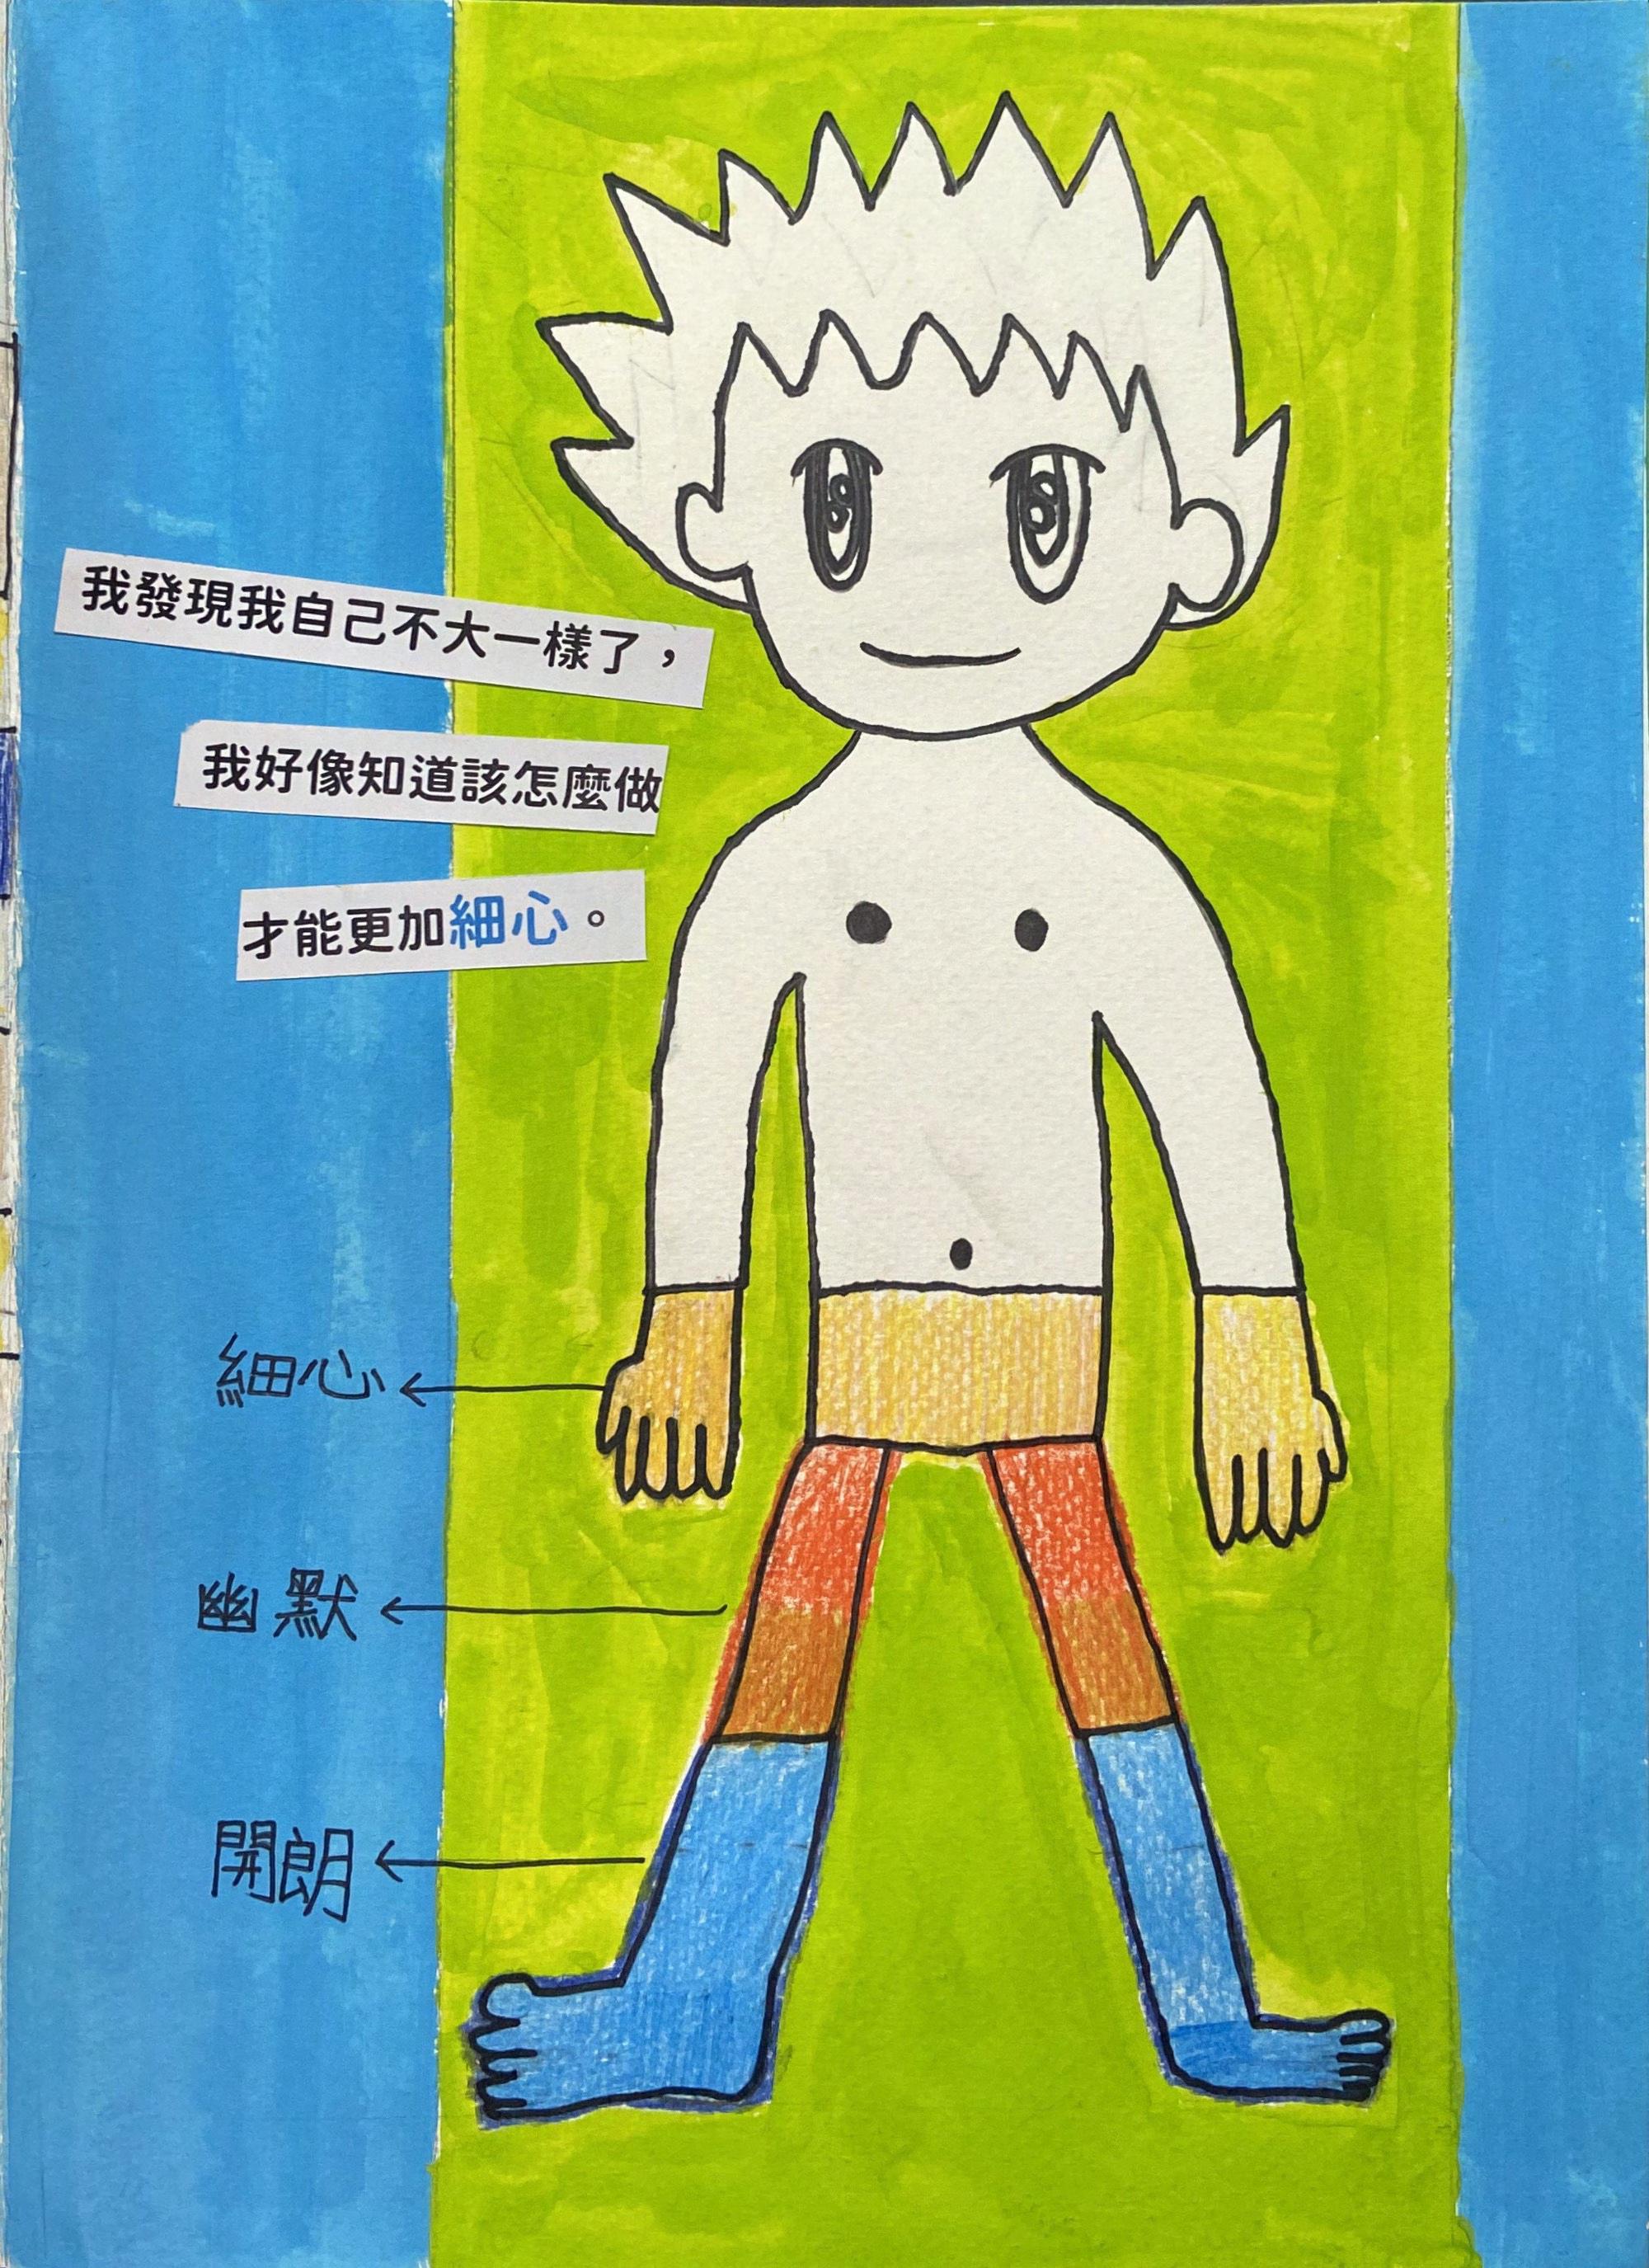 我發現我自己不大一樣了，
我好像知道該怎麼做
才能更加細心。
細心
幽默
開朗